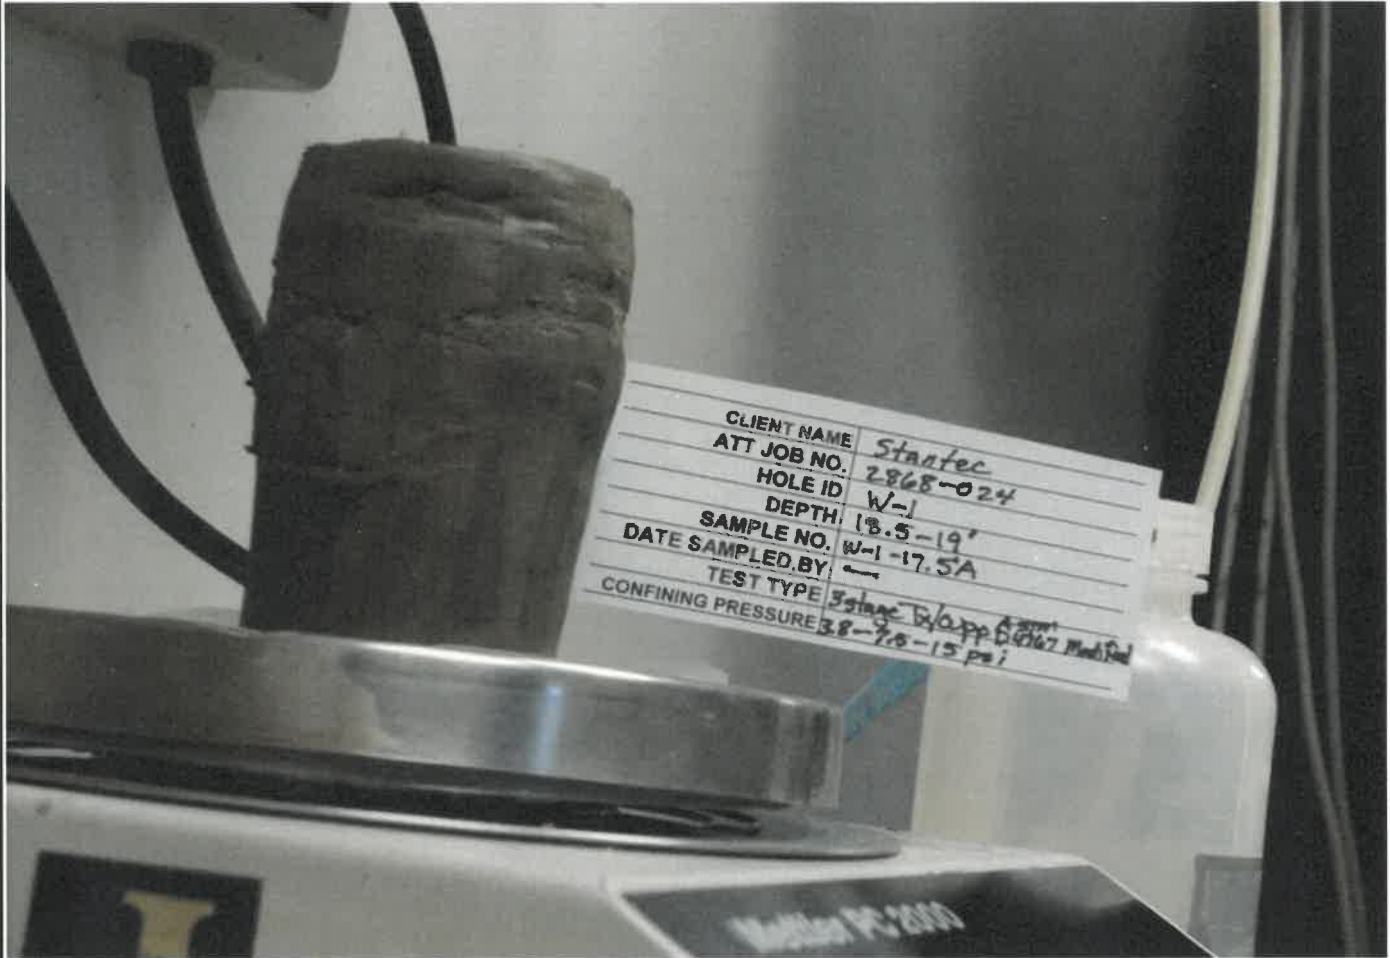 CLIENT NAME Stantec
ATT JOB NO. 2868-024
HOLE ID W-1
DEPTH 18.5-19'
SAMPLE NO. W-1-17.5A
DATE SAMPLED.BY —
TEST TYPE 3 stage Tx/app ASTM D4767 Modified
CONFINING PRESSURE 3.8-7.5-15 psi
Mettler PC 2000